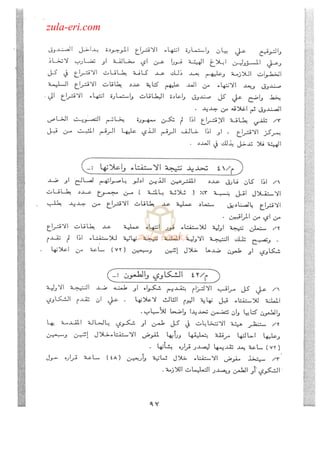 zula-eri.com
والتوقيع على بيان واستمارة انتهاء الاقتراع الموجودة بداخل الصندوق
وعلى المسؤولين ابلاغ الهيئة فورا عن اي مخالفة او تضارب لاتخاذ
الخطوات اللازمة وعليهم بعد ذلك عد كافة بطاقات الاقتراع في كل
صندوق وبعد الانتهاء من العد عليهم كتابة عدد بطاقات الاقتراع السليمة
بخط واضح على كل صندوق واعادة البطاقات واستمارة انتهاء الاقتراع الى
الصندوق ثم اغلاقه من جديد .
٣/ تلغي بطاقة الاقتراع اذا لم تكن ممهورة بخاتم التصويت الخاص
بمركز الاقتراع . او اذا خالف الرقم الذي عليها الرقم المثبت من قبل
الهيئة فلا تدخل بذلك في العد .
م/٤١ تحديد نتيجة الاستفتاء واعلانها :ـ
١/ اذا كان فارق عدد المقترعين الذين ادلو باصواتهم لصالح او ضد
الاستقلال اقل بنسبة ٣٪ ( ثلاثة بالمئة ) من مجموع عدد بطاقات
الاقتراع بالصناديق ستعاد عملية عد بطاقات الاقتراع من جديد بطلب
من اي من المراقبين .
٢/ ستعلن نتيجة اولية للاستفتاء فور انتهاء عملية عد بطاقات الاقتراع
. وتصبح تلك النتيجة الاولية المعلنة نتيجة نهائية للاستفتاء اذا لم تقدم
شكاوي او طعون ضدها خلال إثنين وسبعين (٧٢) ساعة من اعلانها .
م/٤٢ الشكاوي والطعون :ـ
١/ على كل مراقب الالتزام بتقديم شكواه او طعنه ضد النتيجة الاولية
المعلنة للاستفتاء قبل نهاية اليوم الثالث لاعلانها . على ان تقدم الشكاوي
والطعون كتابيا وان تتضمن تحديدا واضحا للأسباب .
٢/ ستنظر هيئة الانتخابات في كل طعن او شكوي بالحالة المقدمة بها
وعليها احالتها مرفقة بتعليقها ورأيها لمفوض الاستفتاء خلال إثنين وسبعين
(٧٢) ساعة بعد تقديمها ليصدر قراره بشأنها .
٣/ سيتخذ مفوض الاستفتاء خلال ثمانية وأربعين (٤٨) ساعة قراره حول
الشكوي أو الطعن ويصدر التعليمات اللازمة .
٩٧